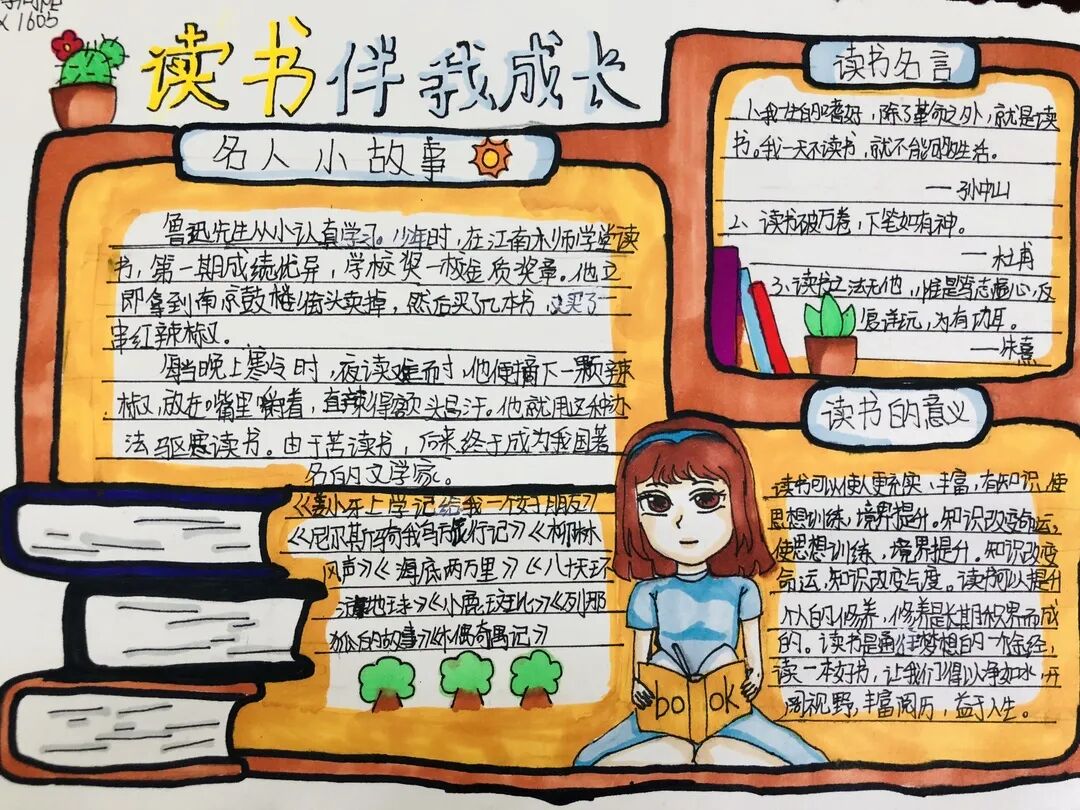 1605
读书伴我成长
名人小故事
鲁迅先生从小认真学习。少年时，在江南水师学堂读
书，第一期成绩优异，学校奖一枚金质奖章。他立
即拿到南京鼓楼街头卖掉，然后买了几本书，又买了一
串红辣椒。
每当晚上寒冷时，夜读难耐，他便摘下一颗辣
椒，放在嘴里嚼着，直辣得额头冒汗。他就用这种办
法驱寒读书。由于苦读书，后来终于成为我国著
名的文学家。
《姜小牙上学记给我一个好朋友》
《尼尔斯骑鹅鸟行记》《柳林
风声》《海底两万里》《八十天环
地球》《小鹿斑比》《列那
狐的故事》《木偶奇遇记》
读书名言
1、我一生的嗜好，除了革命之外，就是读
书。我一天不读书，就不能够生活。
—孙中山
2、读书破万卷，下笔如有神。
—杜甫
3、读书之法无他，惟是笃志虚心，反
复详玩，为有功耳。
—朱熹
读书的意义
读书可以使人更充实、丰富，有知识，使
思想训练，境界提升。知识改变命运，
使思想训练，境界提升。知识改变
命运，知识改变气度。读书可以提升
个人的修养，修养是长期积累而成
的。读书是通往梦想的一个途径，
读一本好书，让我们得以净如水，开
阔视野，丰富阅历，益于人生。
book